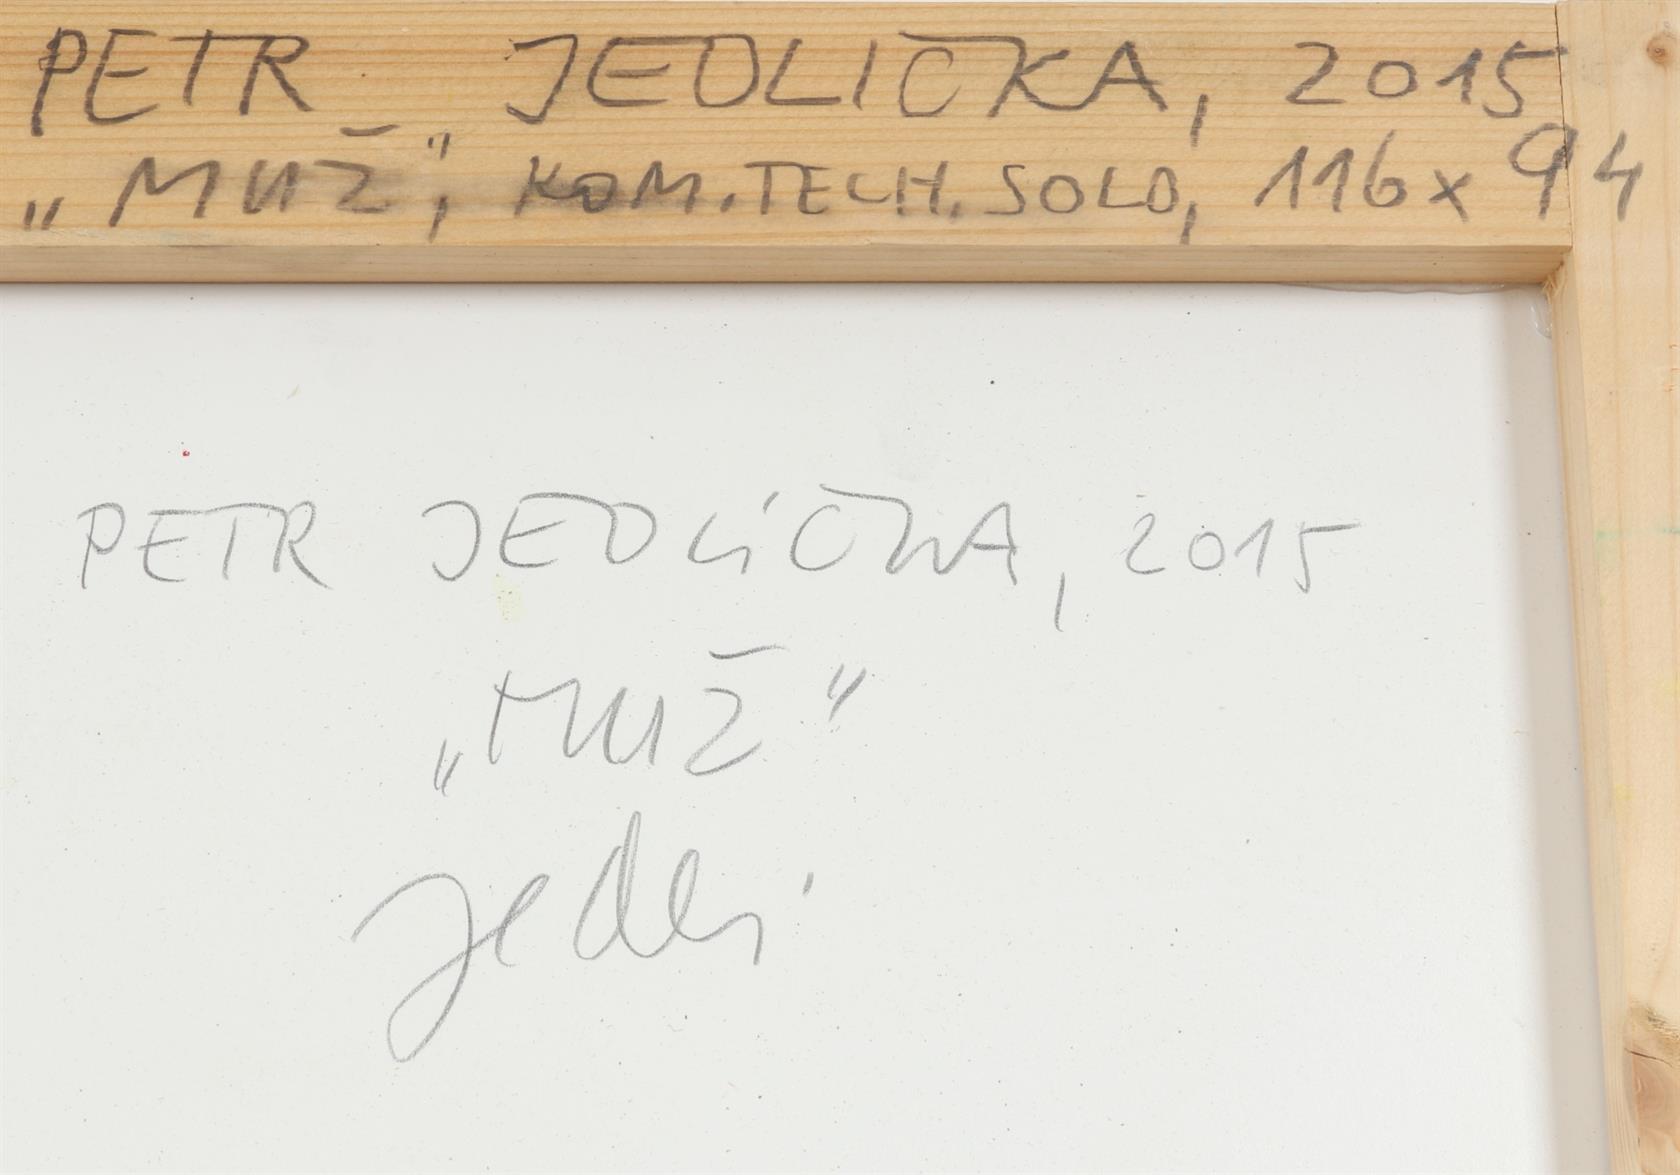 PETR JEDLIČKA, 2015
„MUŽ“, KOM.TECH.SOLO, 116x94
PETR JEDLIČKA, 2015
„MUŽ“
Jedli